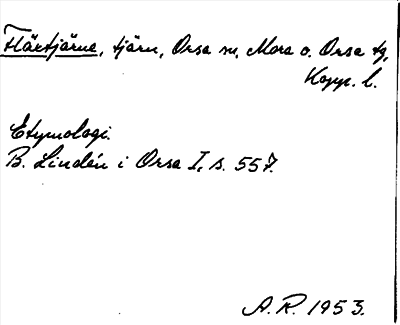 Härtjärne, tjärn, Orsa sn, Mora o. Orsa tg,
Kopp. l.
Etymologi.
B. Lindén i Orsa I, s. 557.
A.R. 1953.